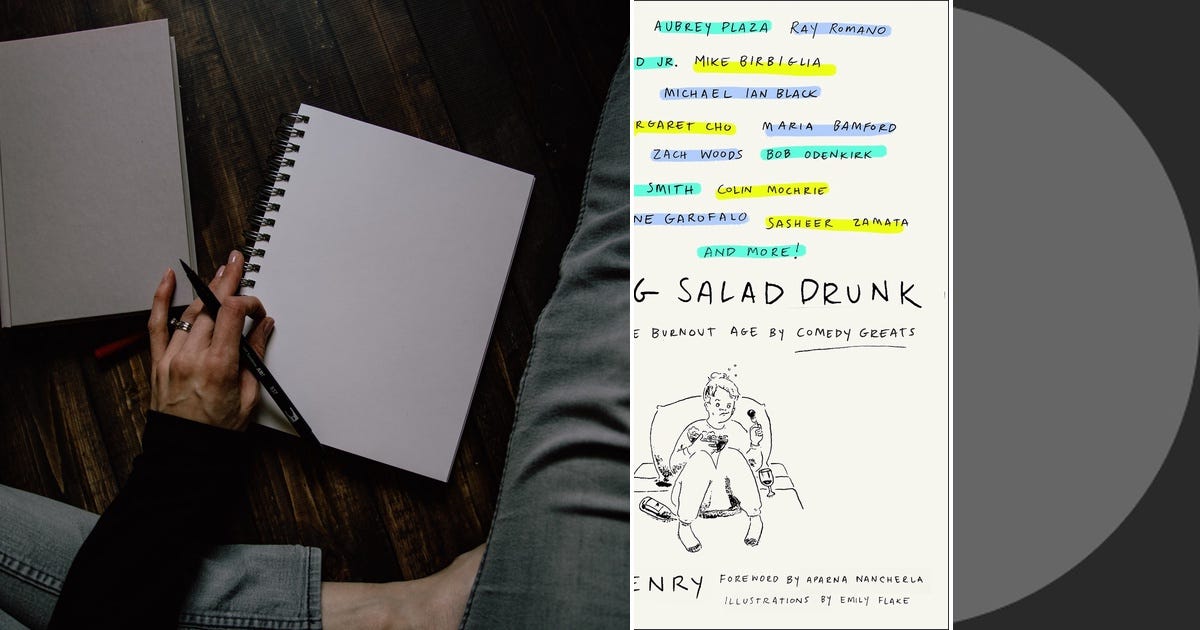 AUBREY PLAZA RAY ROMANO
D JR. MIKE BIRBIGLIA
MICHAEL IAN BLACK
RGARET CHO MARIA BAMFORD
ZACH WOODS BOB ODENKIRK
SMITH COLIN MOCHRIE
NE GAROFALO SASHEER ZAMATA
AND MORE!
G SALAD DRUNK
E BURNOUT AGE BY COMEDY GREATS
ENRY FOREWORD BY APARNA NANCHERLA
ILLUSTRATIONS BY EMILY FLAKE